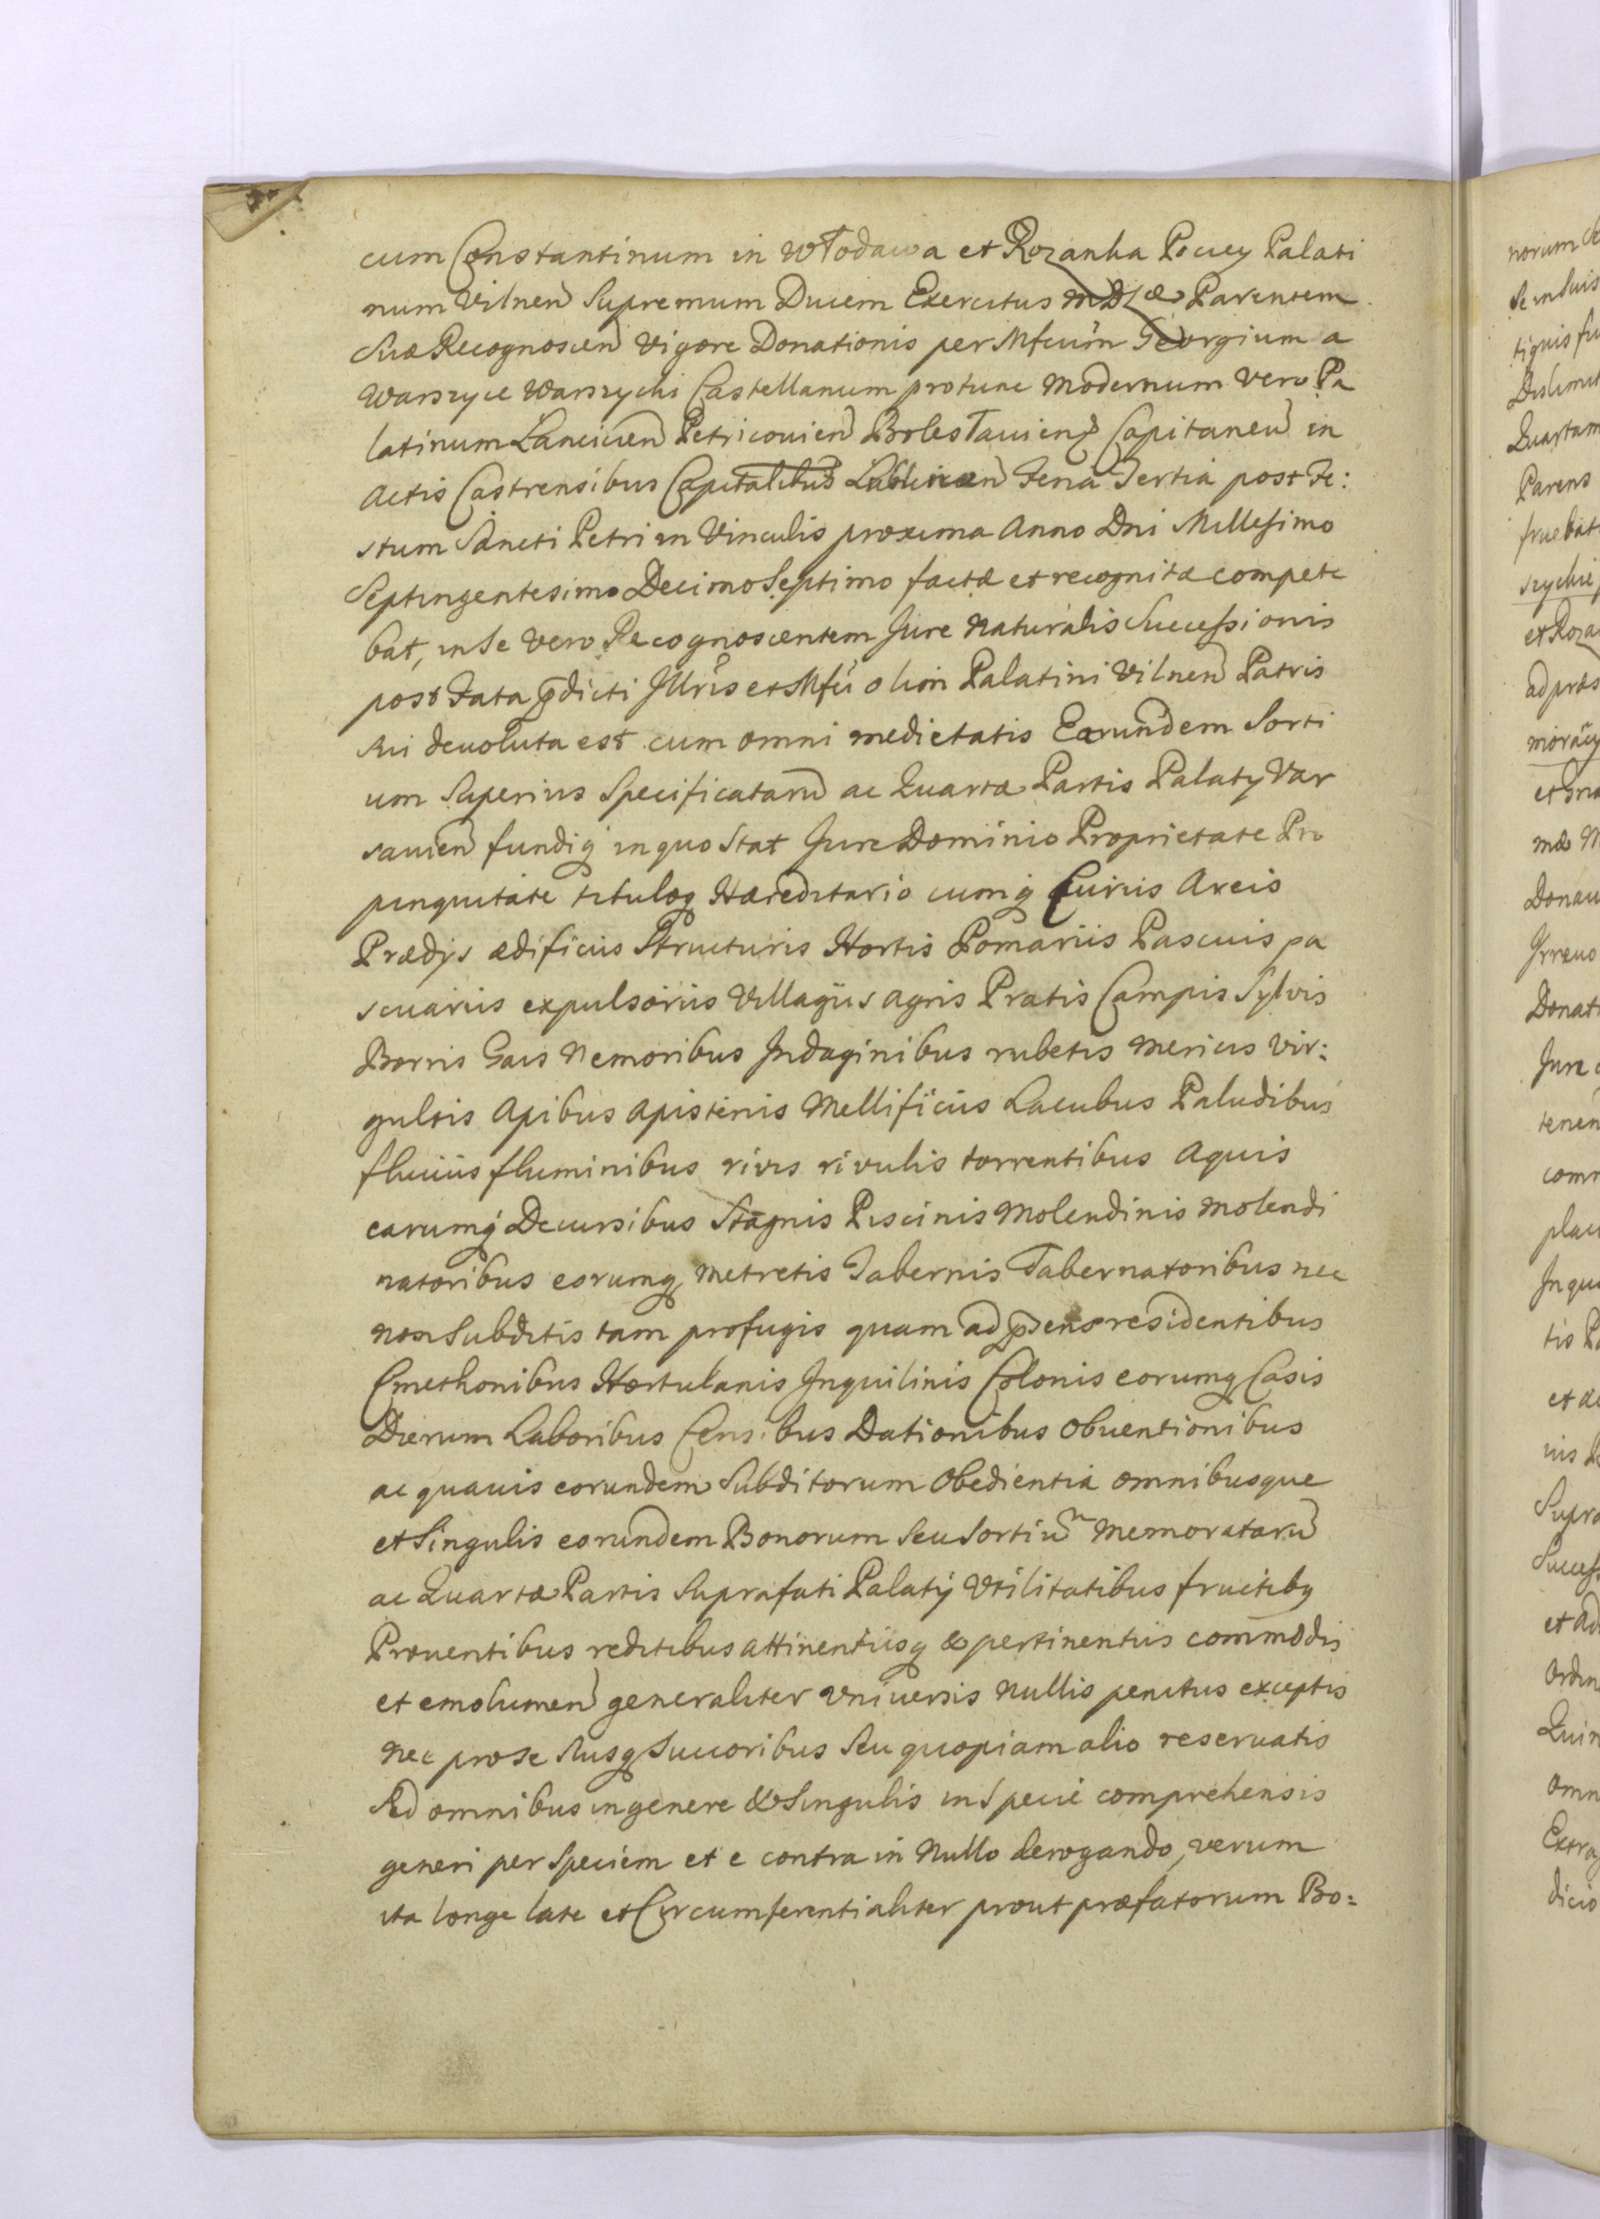 cum Constantinum in Włodawa et Rozanka Pociey Palati
num Vilnen Supremum Ducem Exercitus M D L æ Parentem
Suæ Recognoscen vigore Donationis per Mfcum Georgium a
Warszyce Warszycki Castellanum protunc modernum vero Pa
latinum Lancicien Petricouien Bolesłauienq Capitaneu in
Actis Castrensibus Capitalibus Lublinen Feria Tertia post Fe:
stum Sancti Petri in Vinculis proxima Anno Dni Millesimo
Septingentesimo Decimo Septimo factæ et recognitæ compete
bat, in Se vero Recognoscentem Jure naturalis Successionis
post Fata pdicti Jllris et Mfci olim Palatini Vilnen Patris
Sui deuoluta est cum omni medietatis Earundem Sorti
um Superius Specificataru ac Quartæ Partis Palaty Var
sauien fundiq in quo Stat Jure Dominio Proprietate Pro
pinquitate tituloq Hæreditario cumq Curiis Areis
Prædys ædificiis Structuris Hortis Pomariis Pascuis pa
scuariis expulsoriis Villagiis agris Pratis Campis Sylvis
Borris Gais Nemoribus Jndaginibus rubetis mericis Vir:
gultis Apibus Apisteriis Mellificiis Lacubus Paludibus
fluuiis fluminibus rivis rivulis torrentibus Aquis
earumq Decursibus Stagnis Piscinis Molendinis Molendi
natoribus eorumq metretis Tabernis Tabernatoribus nec
non Subditis tam profugis quam ad pSens residentibus
Cmethonibus Hortulanis Jnquilinis Colonis eorumq Casis
Dierum Laboribus Censibus Dationibus Obuentionibus
ac quauis eorundem Subditorum Obedientia omnibusque
et Singulis eorundem Bonorum Seu Sortiu memorataru
ac Quartæ Partis Suprafati Palaty Vtilitatibus fructibq
Prouentibus reditibus attinentiisq & pertinentiis commodis
et emolumen generaliter vniuersis nullis penitus exceptis
nec pro Se Suisq Succoribus Seu quopiam alio reseruatis
Sed omnibus in genere & Singulis in Specie comprehensis
generi per Speciem et e contra in Nullo derogando, verum
ita longe late et Circumferentialiter prout præfatorum Bo=